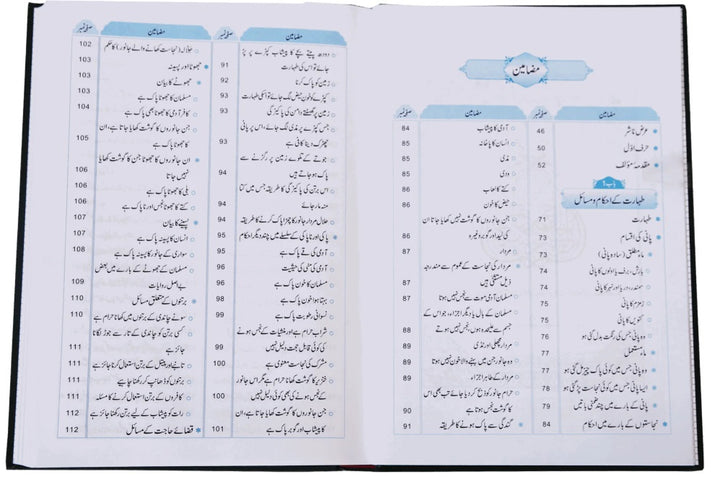 مضامین
مضامین صفحہ نمبر
عرض ناشر 46
حرف اوّل 50
مقدمہ مؤلف 52
باب 1
طہارت کے احکام و مسائل
طہارت 71
پانی کی اقسام 73
ماء مطلق (سادہ پانی) 73
بارش، برف یا اولوں کا پانی 74
سمندر، دریا اور نہر کا پانی 74
زمزم کا پانی 75
کنویں کا پانی 75
وہ پانی جس کی رنگت بدل گئی ہو 76
ماء مستعمل 77
وہ پانی جس میں کوئی پاک چیز مل گئی ہو 77
ایسا پانی جس میں کوئی نجاست پڑ گئی ہو 78
پانی کے بارے میں چند فقہی باتیں 79
نجاستوں کے بارے میں احکام 84
مضامین صفحہ نمبر
آدمی کا پیشاب 84
انسان کا پاخانہ 85
مذی 85
ودی 85
کتے کا لعاب 86
حیض کا خون 86
جن جانوروں کا گوشت نہیں کھایا جاتا ان
کی لید اور گوبر وغیرہ 86
مردار 86
مردار کی نجاست کے عموم سے مندرجہ
ذیل مستثنیٰ ہے 87
مسلمان آدمی موت سے نجس نہیں ہوتا 87
مسلمان کے بال یا دیگر اجزاء، جو اس کے
جسم سے علیحدہ ہوں، نجس نہیں ہوتے 88
مردار مچھلی اور ٹڈی 89
وہ جانور جن میں بہنے والا خون نہیں ہوتا 89
مردار کے ظاہر اجزاء 89
حرام جانور کو ذبح کر دیا جائے تب بھی اس
کا گوشت نجس ہوتا ہے 90
گندگی سے پاک ہونے کا طریقہ 91
مضامین صفحہ نمبر
دودھ پیتے بچے کا پیشاب کپڑے پر پڑ
جائے تو اس کی طہارت 91
زمین کو پاک کرنا 92
کپڑے کو خون حیض لگ جائے تو اسکی طہارت 93
زمین پر گھسٹنے دامن کی پاکیزگی کا طریقہ 93
جس کپڑے پر مذی لگ جائے، اس پر پانی
چھڑک دینا کافی ہے 93
جوتے کے تلوے زمین پر رگڑنے سے
پاک ہو جاتے ہیں 94
اس برتن کی پاکیزگی کا طریقہ جس میں کتا
منہ مار جائے 94
حلال مردار جانور کا چمڑا پاک کرنے کا طریقہ 94
پاکی اور ناپاکی کے سلسلے میں چند دیگر احکام 95
آدمی کی قے پاک ہے 95
آدمی کی منی کی حیثیت 96
مسلمان کا خون پاک ہے 96
بہتا ہوا خون پاک ہے 98
نسوانی رطوبت پاک ہے 98
شراب حرام ہے اور منشیات کے نجس ہونے
کی کوئی قابل حجت دلیل نہیں 99
مشرک کی نجاست معنوی ہے 100
خنزیر کا گوشت کھانا حرام ہے مگر اس جانور
کے نجس ہونے کی بھی کوئی دلیل نہیں 100
جن جانوروں کا گوشت کھایا جاتا ہے، ان
کا پیشاب اور گوبر پاک ہے 101
مضامین صفحہ نمبر
جلالہ (نجاست کھانے والے جانور) کا حکم 102
جھوٹا اور پسینہ 103
جھوٹے کا بیان 103
مسلمان کا جھوٹا پاک ہے 103
کافر آدمی کا جھوٹا بھی پاک ہے 104
جن جانوروں کا گوشت کھایا جاتا ہے، ان
کا جھوٹا پاک ہے 105
ان جانوروں کا جھوٹا جن کا گوشت کھایا
نہیں جاتا 106
بلی کا جھوٹا پاک ہے 106
کتے کا جھوٹا نجس اور ناپاک ہے 107
پسینے کا بیان 107
انسان کا پسینہ پاک ہے 107
سواری کے جانور کا پسینہ پاک ہے 108
مسلمان کے جھوٹے کے بارے میں بعض
بے اصل روایات 109
برتنوں کے متعلق مسائل 110
سونے چاندی کے برتنوں میں کھانا حرام ہے 110
کسی برتن کو چاندی کے تار سے جوڑ لگانا
جائز ہے 111
تانبے اور پیتل کے برتن استعمال کرنا جائز ہے 111
برتنوں کو ڈھانپ کر رکھنا چاہیے 111
کافروں کے برتن استعمال کرنے کا مسئلہ 111
رات کو پیشاب کے لیے برتن رکھنا جائز ہے 112
قضائے حاجت کے مسائل 112